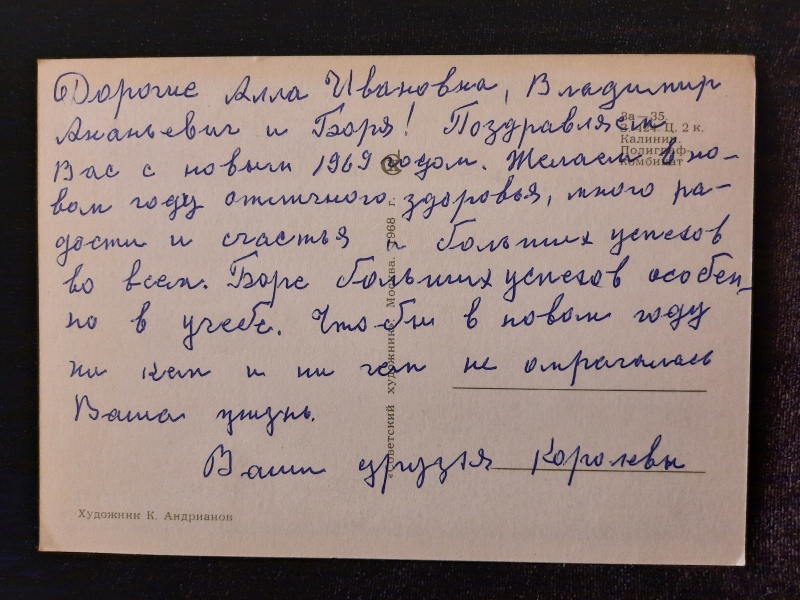 Дорогие Алла Ивановна, Владимир
Ананьевич и Боря! Поздравляем
Вас с новым 1969 годом. Желаем в но-
вом году отличного здоровья, много ра-
дости и счастья и больших успехов
во всем. Боре больших успехов особен-
но в учебе. Чтобы в новом году
ни кем и ни чем не омрачалась
Ваша жизнь.
Ваши друзья Королевы
За—35.
Ц. 2 к.
Калинин.
Полиграф-
комбинат
«Советский художник». Москва. 1968 г.
Художник К. Андрианов